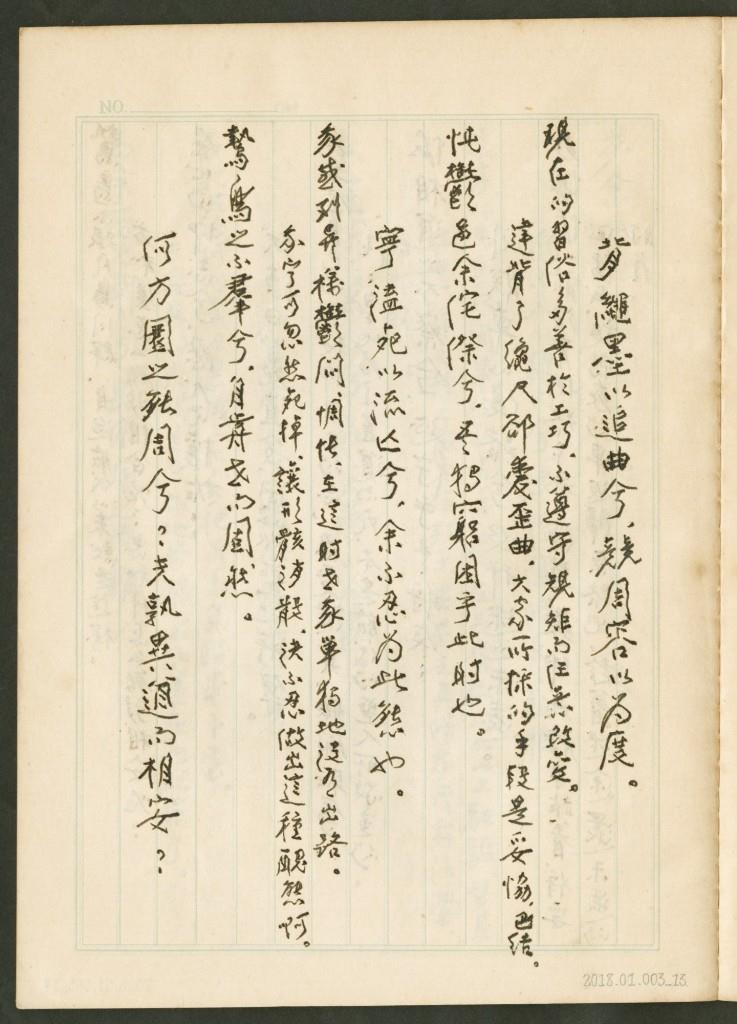 背繩墨以追曲兮,競周容以為度。
現在的習俗多善於工巧、不遵守規矩而任意改變。
違背了繩尺郤愛歪曲,大家所採的手段是妥協,巴結。
忳鬱邑余侘傺兮,吾獨窮困乎此時也。
寧溘死以流亡兮,余不忍為此態也。
我感到異樣鬱悶惆悵、在這時世我單獨地沒有出路。
我寧可忽然死掉、讓形骸消散、決不忍做出這種醜態啊。
鷙鳥之不羣兮,自前世而固然。
何方圜之能周兮?夫孰異道而相安?
NO
2018.01.003_13